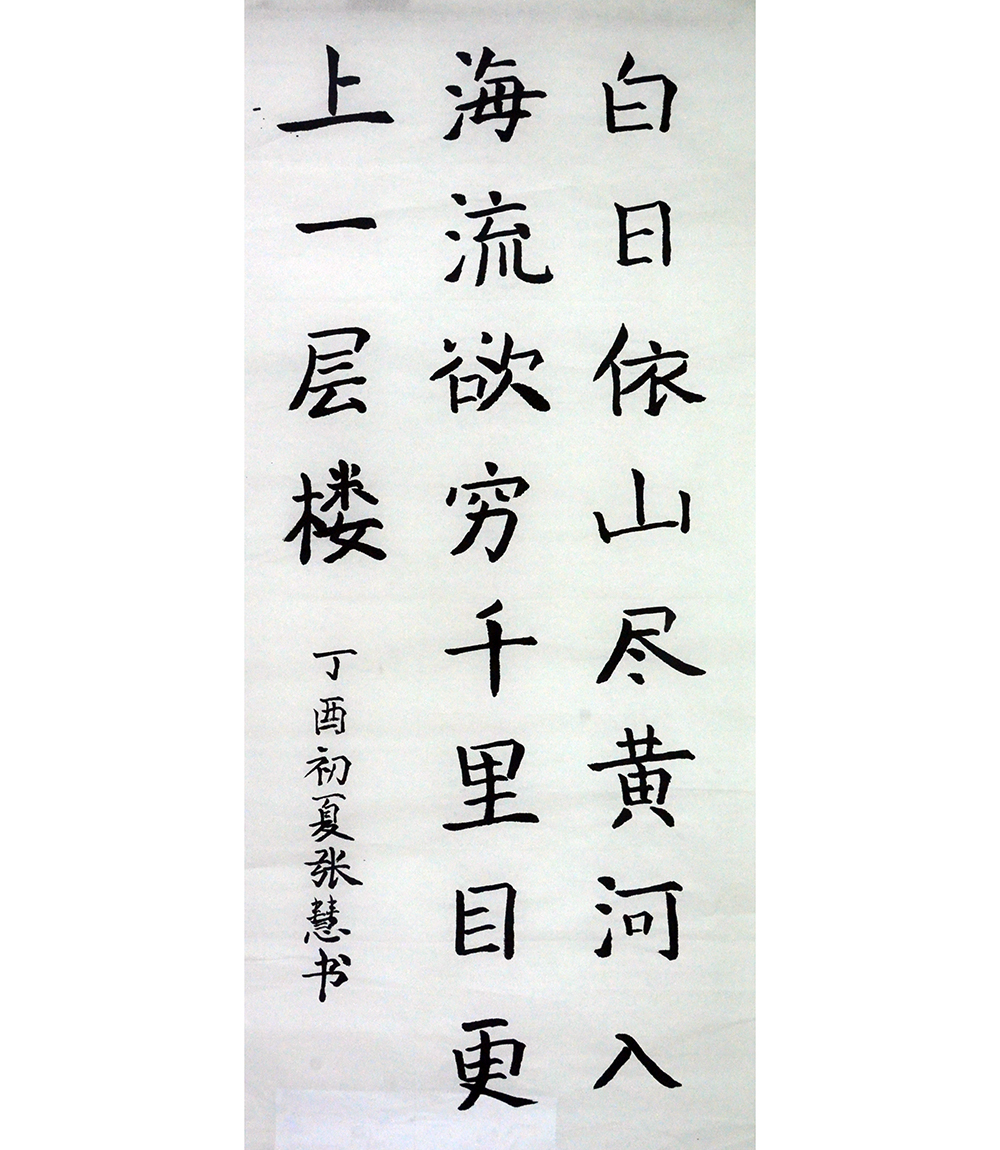 白日依山尽黄河入
海流欲穷千里目更
上一层楼
丁酉初夏张慧书